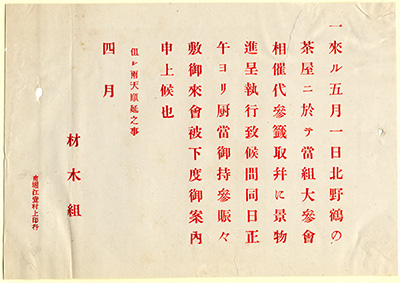 一來ル五月一日北野鶴の
茶屋ニ於テ當組大參會
相催代參籤取幷に景物
進呈執行致候間同日正
午ヨリ厨當御持參賑々
敷御來會被下度御案內
申上候也
但シ雨天順延之事
四月
材木組
東堀江壹村上印行